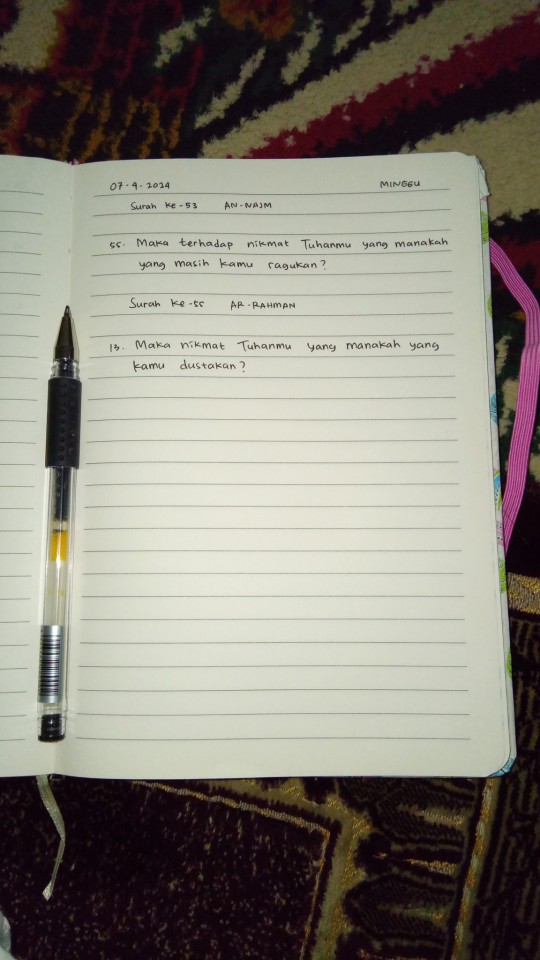 07-4-2024
MINGGU
Surah Ke-53 AN-NAJM
55. Maka terhadap nikmat Tuhanmu yang manakah
yang masih kamu ragukan?
Surah Ke-55 AR-RAHMAN
13. Maka nikmat Tuhanmu yang manakah yang
kamu dustakan?